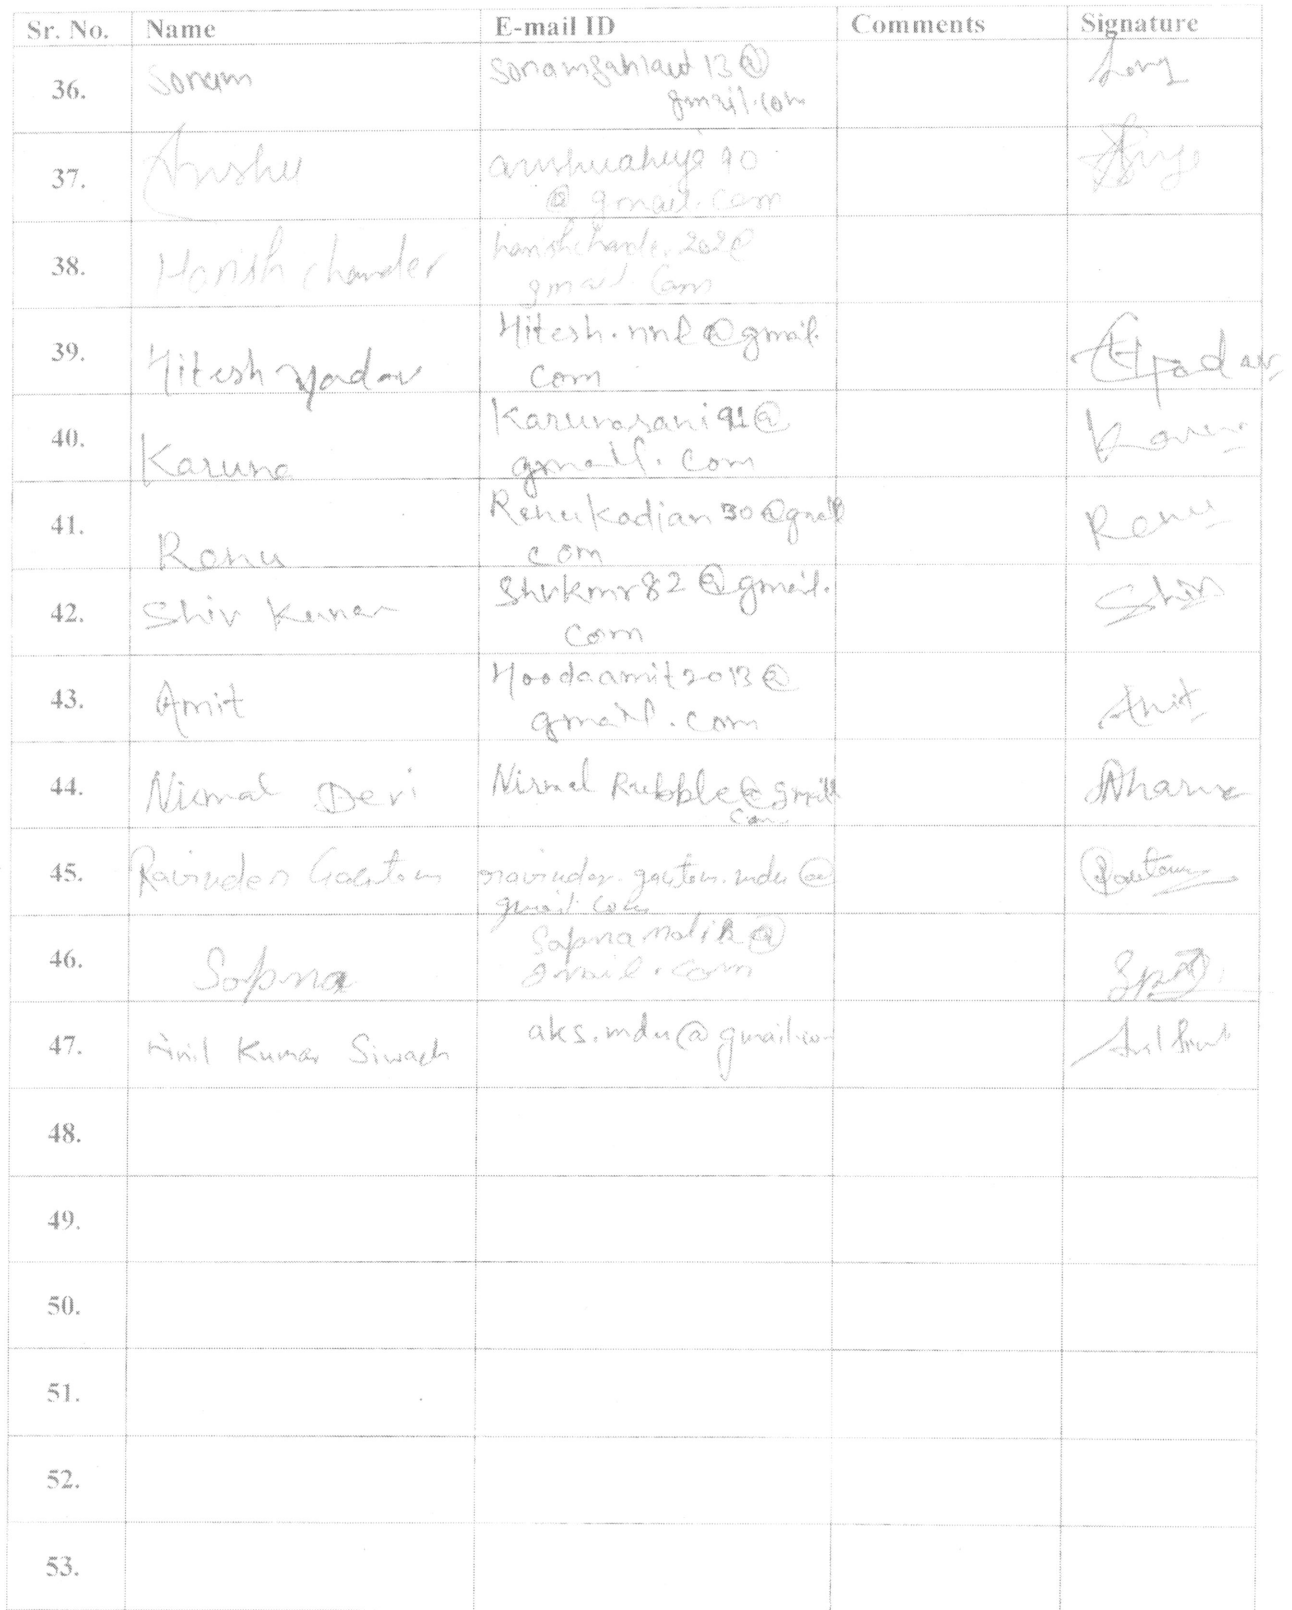 Sr. No. Name E-mail ID Comments Signature
36. Sonam 13@
gmail.com
37. Anshu anshuahuja90
@gmail.com
38. Harish Chander harishchander.202@
gmail.com
39. Hitesh Yadav Hitesh.nnl@gmail.
com
40. Karuna Karunasani91@
gmail.com
41. Renu Renukadian30@gmail
com
42. Shiv Kumar Shvkmr82@gmail.
com Shiv
43. Amit Hoodaamit2013@
gmail.com Amit
44. Nirmal Devi Nirmal Rubble@gmail
com
45. Ravinder Gautam ravinder.gautam.mdu@
gmail.com Gautam
46. Sapna Sapnamalik@
gmail.com
47. Anil Kumar Siwach aks.mdu@gmail.com
48.
49.
50.
51.
52.
53.